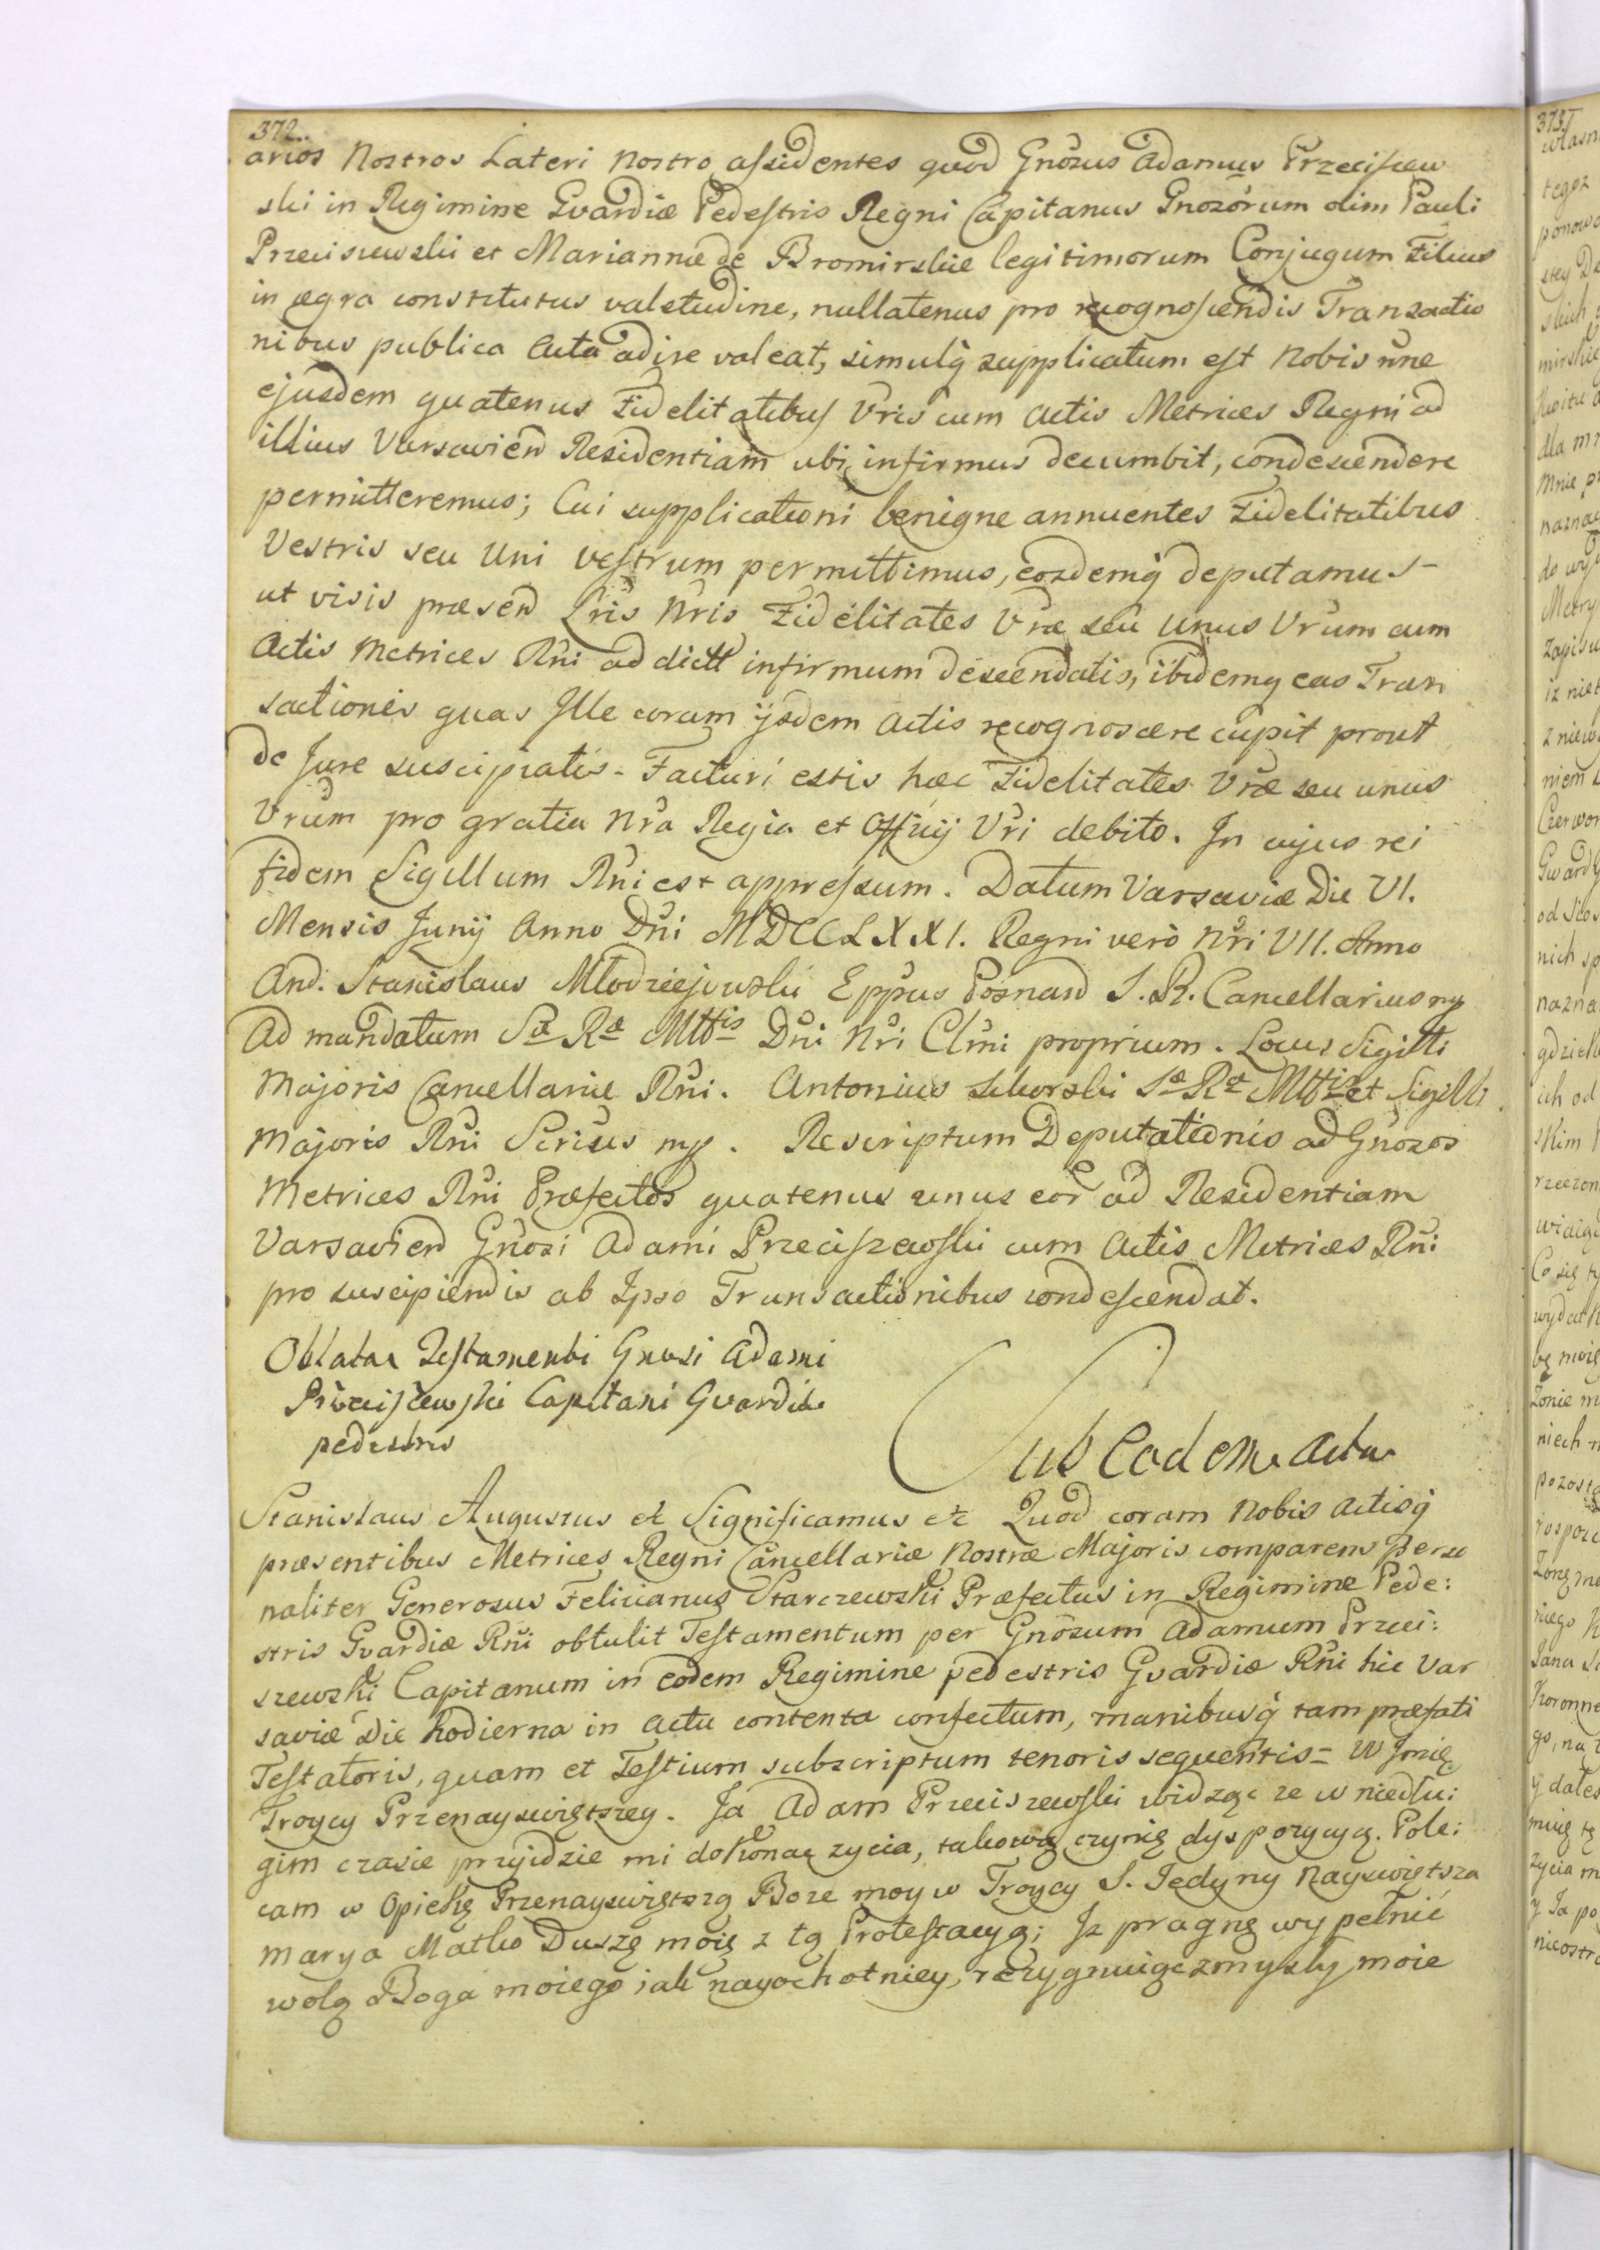 372.
arios Nostros Lateri Nostro assidentes quod Gnosus Adamus Przeciszew
ski in Regimine Gvardiæ Pedestris Regni Capitanus Gnosorum olim Pauli
Przeciszewski et Mariannæ de Bromirskie legitimorum Conjugum Filius
in ægra constitutus valetudine, nullatenus pro recognoscendis Transactio
nibus publica Acta adire valeat, simulq supplicatum est Nobis nne
ejusdem quatenus Fidelitatibus Vris cum Actis Metrices Regni ad
illius Varsavien Residentiam ubi infirmus decumbit, condescendere
permitteremus; Cui supplicationi benigne annuentes Fidelitatibus
Vestris seu Uni vestrum permittimus, eosdemq deputamus-
ut visis præsen Lris Nris Fidelitates Vræ seu unus Vrum cum
Actis Metrices Rni ad dictt infirmum descendatis, ibidemq eas Tran
sactiones quas Ille coram ijsdem Actis recognoscere cupit prout
de Jure suscipiatis - Facturi estis hæc Fidelitates Vræ seu unus
Vrum pro gratia Nra Regia et Officij Vri debito. In cujus rei
fidem Sigillum Rni est appressum. Datum Varsaviæ Die VI.
Mensis Junij Anno Dni MDCCLXXI. Regni verò Nri VII. Anno
And. Stanislaus Młodziejowski Eppus Posnan S. R. Cancellarius mp
Ad mandatum Sæ Ræ Mttis Dni Nri Clmi proprium. Locus Sigilli
Majoris Cancellariæ Rni. Antonius Sikorski Sæ Ræ Mttis et Sigilli
Majoris Rni Scrius mp. Rescriptum Deputationis ad Gnosos
Metrices Rni Præfectos quatenus unus eor ad Residentiam
Varsavien Gnosi Adami Przeciszewski cum Actis Metrices Rni
pro suscipiendis ab Ipso Transactionibus condescendat.
Oblata Testamenti Gnosi Adami
Przeciszewski Capitani Gvardiæ
pedestris
Sub Eodem Actu
Stanislaus Augustus et Significamus etc Quod coram Nobis Actisq
præsentibus Metrices Regni Cancellariæ Nostræ Majoris comparens Perso
naliter Generosus Felicianus Starczewski Præfectus in Regimine Pede:
stris Gvardiæ Rni obtulit Testamentum per Gnosum Adamum Przeci:
szewski Capitanum in eodem Regimine pedestris Gvardiæ Rni hic Var
saviæ Die hodierna in actu contenta confectum, manibusq tam præfati
Testatoris, quam et Testium subscriptum tenoris sequentis = W Jmię
Troycy Przenayswiętszey. Ja Adam Przeciszewski widząc ze w niedłu:
gim czasie przyidzie mi dokonac zycia, takową czynię dyspozycyą. Pole:
cam w Opiekę Przenayswiętszą Boze moy w Troycy S. Jedyny Nayswiętsza
Marya Matko Duszę moię z tą Protestacyą; Iz pragnę wypełnić
wolą Boga moiego iak nayochotniey, rezygnuiąc zmysły moie